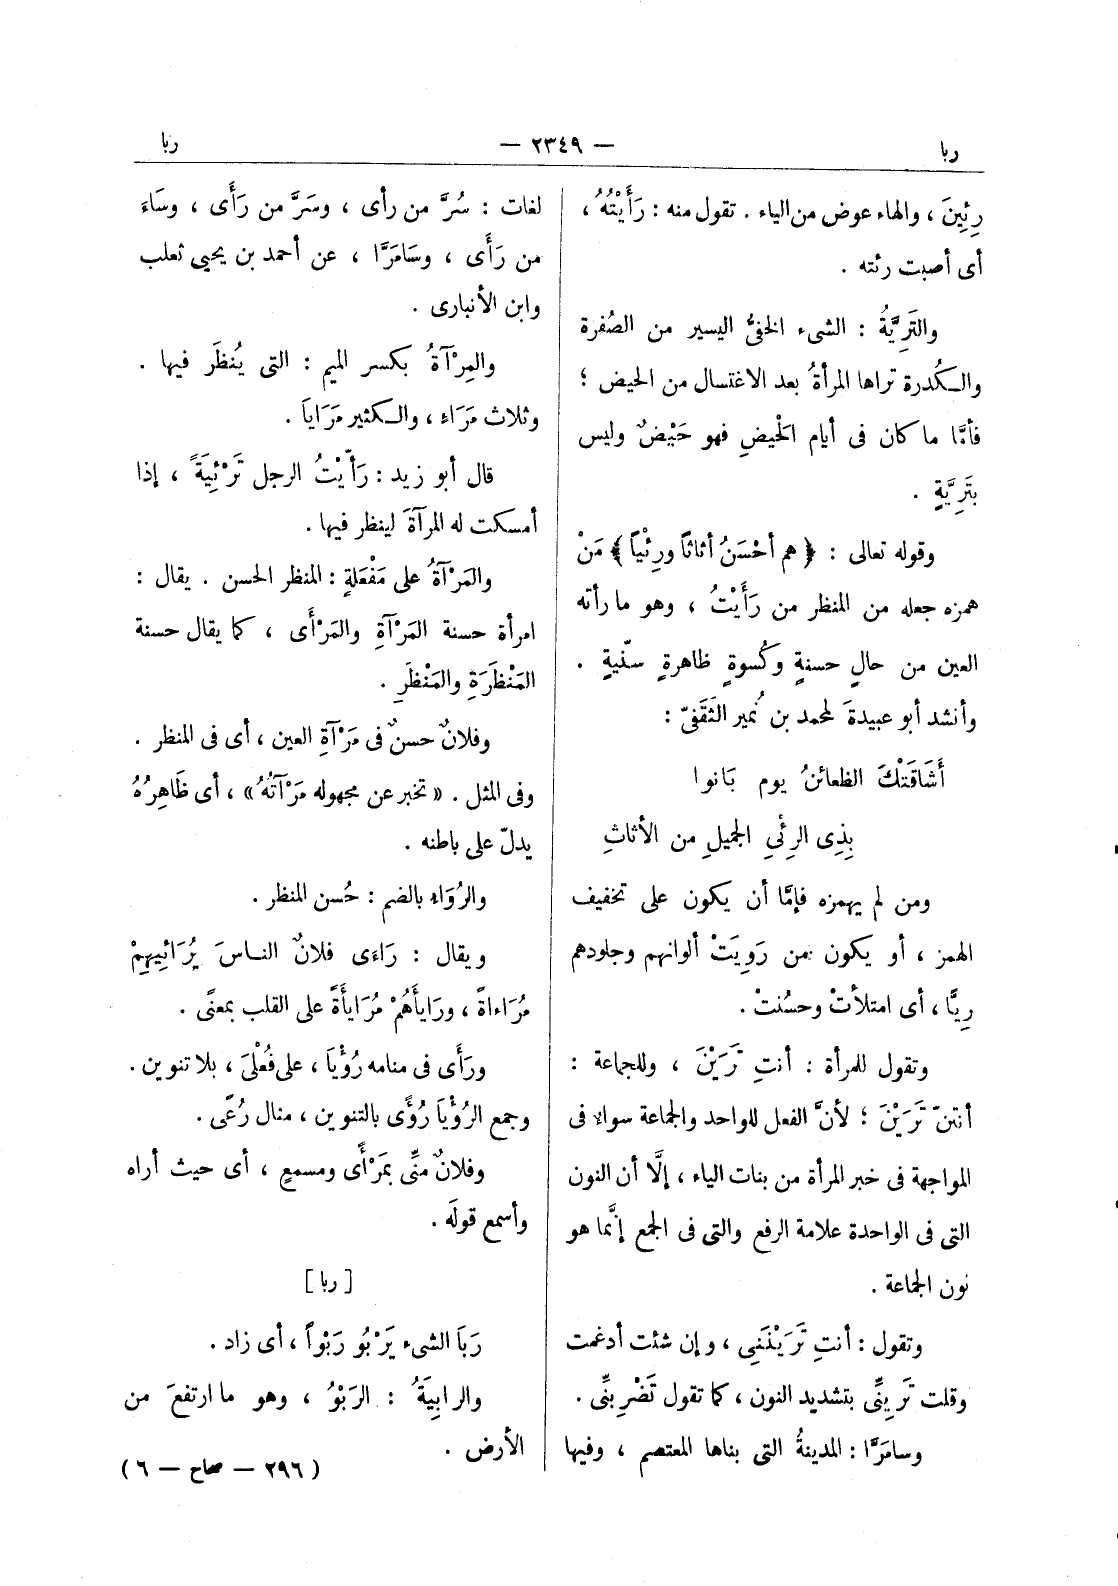 ربا
— ٢٣٤٩ —
ربا
رِئِينَ ، والهاء عوض من الياء . تقول منه : رَأَيْتُهُ ،
أى أصبت رئته .
والتَرِيَّةُ : الشىء الخفىُّ اليسير من الصُفرة
والكُدرة تراها المرأةُ بعد الاغتسال من الحيض ؛
فأمَّا ما كان فى أيام الحَيضِ فهو حَيْضٌ وليس
بتَرِيَّةٍ .
وقوله تعالى : ﴿ هم أحْسَنُ أثاثاً ورِئْياً ﴾ مَنْ
همزه جعله من المنظر من رَأَيْتُ ، وهو ما رأته
العين من حالٍ حسنةٍ وكُسوةٍ ظاهرةٍ سنّيةٍ .
وأنشد أبو عبيدةَ لمحمد بن نُمير الثَقَفىّ :
أَشَاقَتْكَ الظعائنُ يوم بَانوا
بِذِى الرِئْىِ الجميلِ من الأثاثِ
ومن لم يهمزه فإمَّا أن يكون على تخفيف
الهمز ، أو يكون من رَوِيَتْ ألوانهم وجلودهم
رِيًّا ، أى امتلأتْ وحسُنتْ .
وتقول للمرأة : أنتِ تَرَيْنَ ، وللجماعة :
أنتنّ تَرَيْنَ ؛ لأنَّ الفعل للواحد والجماعة سواء فى
المواجهة فى خبر المرأة من بنات الياء ، إلَّا أن النون
التى فى الواحدة علامة الرفع والتى فى الجمع إنَّما هو
نون الجماعة .
وتقول : أنتِ تَرَيْنَنِى ، وإن شئت أدغمت
وقلت تَرَيِنِّى بتشديد النون ، كما تقول تَضْرِبِنِّى .
وسامَرَّا : المدينةُ التى بناها المعتصم ، وفيها
لغات : سُرَّ من رأى ، وسَرَّ من رَأَى ، وسَاءَ
من رَأَى ، وسَامَرَّا ، عن أحمد بن يحيى ثعلب
وابن الأنبارى .
والمِرْآةُ بكسر الميم : التى يُنظَر فيها .
وثلاث مَرَاءٍ ، والكثير مَرَايَا .
قال أبو زيد : رَأَّيْتُ الرجل تَرْئِيَةً ، إذا
أمسكت له المرآةَ لينظر فيها .
والمَرْآةُ على مَفْعَلةٍ : المنظر الحسن . يقال :
امرأة حسنة المَرْآةِ والمَرْأَى ، كما يقال حسنة
المَنْظَرَةِ والمَنْظَرِ .
وفلانٌ حسنٌ فى مَرْآةِ العين ، أى فى المنظر .
وفى المثل . « تخبر عن مجهوله مَرْآتُهُ » ، أى ظَاهِرُهُ
يدلّ على باطنه .
والرُوَاء بالضم : حُسن المنظر .
ويقال : رَاءَى فلانٌ الناسَ يُرَائِيهِمْ
مُرَاءاةً ، ورَايأَهُمْ مُرَايأَةً على القلب بمعنًى .
ورَأَى فى منامه رُؤْيَا ، على فُعْلَىَ ، بلا تنوين .
وجمع الرُؤْيَا رُؤًى بالتنوين ، مثال رُعًى .
وفلانٌ منِّى بمَرْأًى ومسمعٍ ، أى حيث أراه
وأسمع قولَه .
[ ربا ]
رَبَا الشىء يَرْبُو رَبْواً ، أى زاد .
والرابِيَةُ : الرَبْوُ ، وهو ما ارتفعَ من
الأرض .
( ٢٩٦ — صحاح — ٦ )